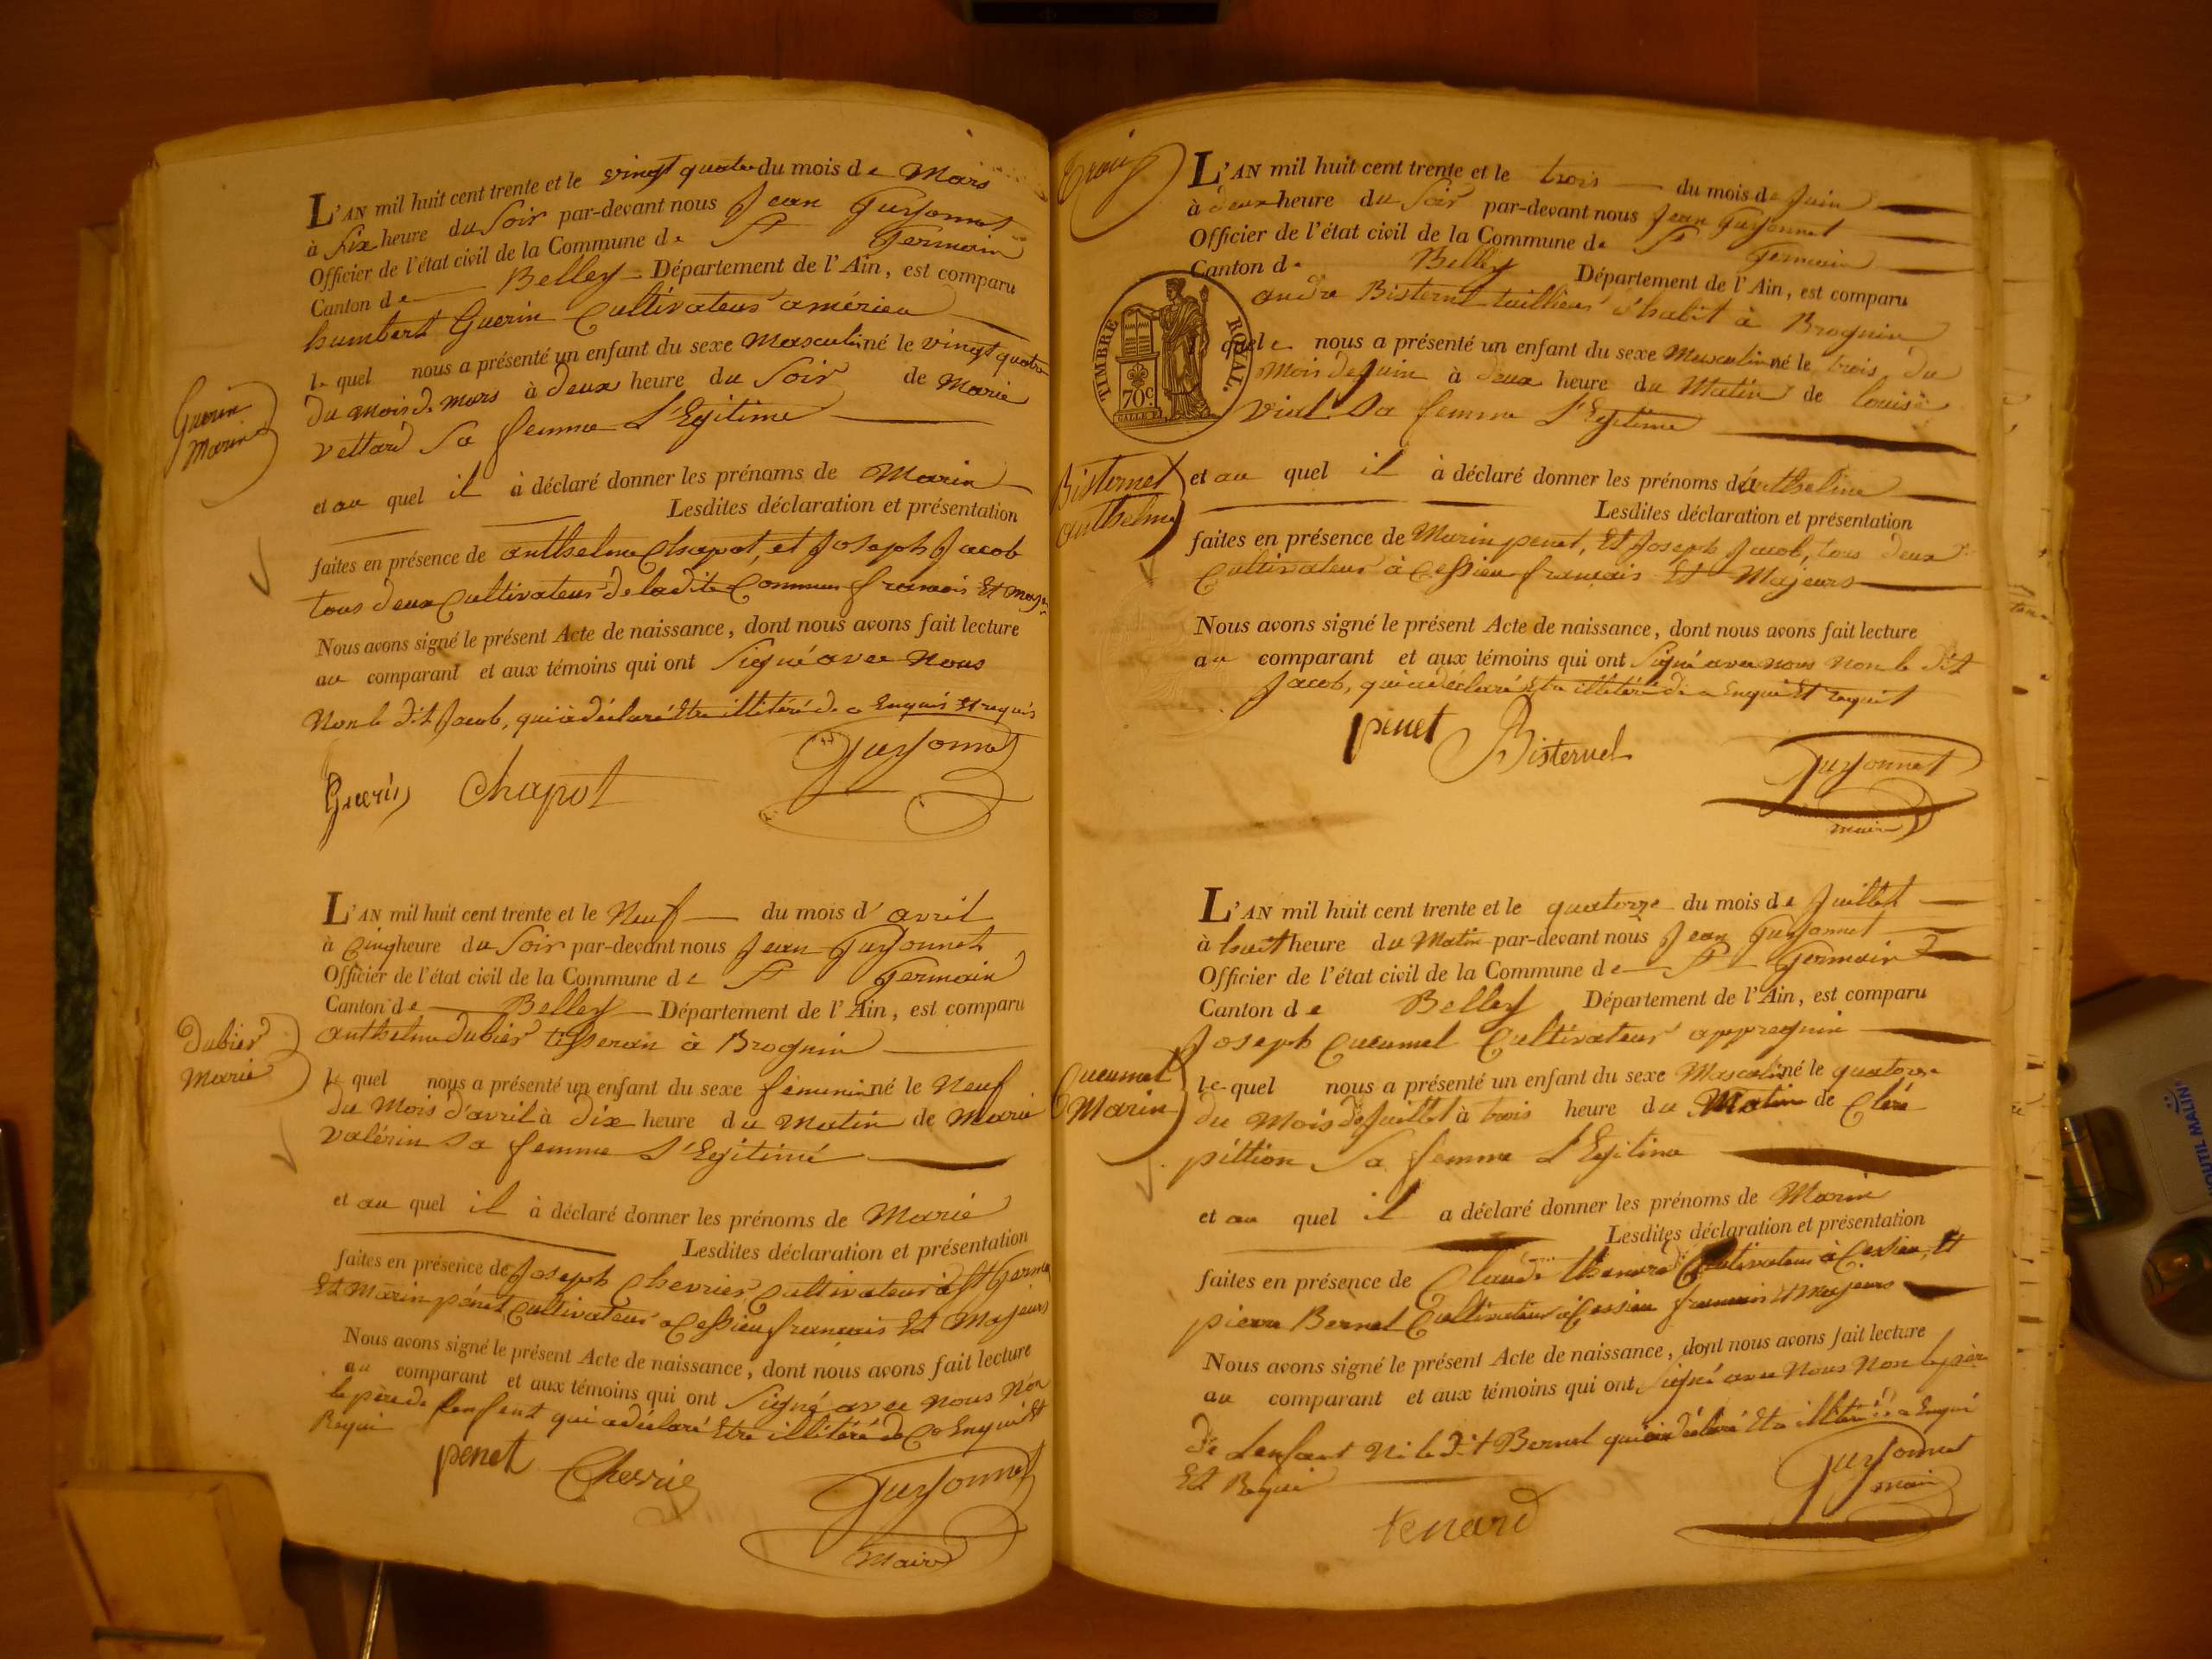 L'AN mil huit cent trente et le vingt quatre du mois de Mars
à Six heure du Soir par-devant nous Jean Guyonnet
Officier de l'état civil de la Commune de St Germain
Canton de Belley Département de l'Ain, est comparu
humbert Guerin Cultivateur amérieu
le quel nous a présenté un enfant du sexe Masculin né le vingt quatre
du mois de mars à deux heure du Soir de Marie
vettard Sa femme L'Egitime
Guerin
Marin
et au quel il à déclaré donner les prénoms de Marin
Lesdites déclaration et présentation
faites en présence de anthelme Chapot, et Joseph Jacob
tous deux Cultivateur de ladite Commune francais Et maj
Nous avons signé le présent Acte de naissance, dont nous avons fait lecture
au comparant et aux témoins qui ont Signé avec Nous
Non le dit Jacob, qui à déclaré Etre illitéré de ce Enquis Et requis
Guerin Chapot Guyonnet
L'AN mil huit cent trente et le Neuf du mois d'avril
à Cinq heure du Soir par-devant nous Jean Guyonnet
Officier de l'état civil de la Commune de St Germain
Canton de Belley Département de l'Ain, est comparu
anthelme dubier tisseran à Brognin
dubier
Marie
le quel nous a présenté un enfant du sexe féminin né le Neuf
du Mois d'avril à dix heure du Matin de Marie
valérin Sa femme L'Egitimé
et au quel il à déclaré donner les prénoms de Marie
Lesdites déclaration et présentation
faites en présence de Joseph Chevrier, Cultivateur à St Germain
Et Marin pénet Cultivateur a Cessieu francais Et Majeurs
Nous avons signé le présent Acte de naissance, dont nous avons fait lecture
au comparant et aux témoins qui ont Signé avec nous Non
le père de Lenfent qui a déclaré Etre illitéré de Ce Enquis Et
Requi
penet Chevrie Guyonnet
Maire
L'AN mil huit cent trente et le trois du mois de Juin
à deux heure du Soir par-devant nous Jean Guyonnet
Officier de l'état civil de la Commune de St Germain
Canton de Belley Département de l'Ain, est comparu
andre Bisternel tailleur d'habit à Brognin
TIMBRE ROYAL.
70c
quel nous a présenté un enfant du sexe Masculin né le trois du
Mois de Juin à deux heure du Matin de louise
vial Sa femme L'Egitime
Bisternet
anthelme
et au quel il à déclaré donner les prénoms d'anthelme
Lesdites déclaration et présentation
faites en présence de Marin penet, Et Joseph Jacob, tous deux
Cultivateur à Cessieu francais Et Majeurs
Nous avons signé le présent Acte de naissance, dont nous avons fait lecture
au comparant et aux témoins qui ont Signé avec nous Non le dit
Jacob, qui a déclaré Etre illitéré de ce Enqui Et requit
penet Bisternel Guyonnet
maire
L'AN mil huit cent trente et le quatorze du mois de Juillet
à huit heure du Matin par-devant nous Jean Guyonnet
Officier de l'état civil de la Commune de St Germain
Canton de Belley Département de l'Ain, est comparu
Joseph Cucumel Cultivateur appregnin
Cucumel
Marin
le quel nous a présenté un enfant du sexe Masculin né le quatorze
du Mois de Juillet à trois heure du Matin de Clere
pittion Sa femme L'Egitime
et au quel il a déclaré donner les prénoms de Marin
Lesdites déclaration et présentation
faites en présence de Claude thenard Cultivateur à Cessieu, Et
pierre Bernel Cultivateur à Cessieu francais Et Majeurs
Nous avons signé le présent Acte de naissance, dont nous avons fait lecture
au comparant et aux témoins qui ont Signé avec Nous Non le père
de Lenfant Ni le dit Bernel qui on déclaré Etre illitéré de ce Enqui
Et Requi
tenard Guyonnet
maire